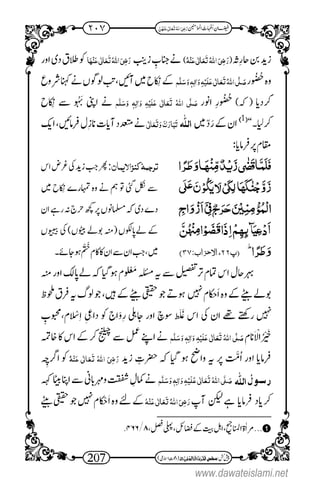 ۲۰۷
زید بن حارِثہ (رَضِیَ اللہُ تَعَالٰی عَنْہُ) نے جناب زینب رَضِیَ اللہُ تَعَالٰی عَنْہَا کو طلاق دی اور
وہ حُضُور صَلَّی اللہُ تَعَالٰی عَلَیْہِ وَاٰلِہٖ وَسَلَّم کے نکاح میں آئیں، تب لوگوں نے کہنا شروع
کر دیا (کہ) حُضُورِ انور صَلَّی اللہُ تَعَالٰی عَلَیْہِ وَاٰلِہٖ وَسَلَّم نے اپنی بہُو سے نکاح
کر لیا۔ (1) ان کے رَدّ میں اللہ تَبَارَکَ وَتَعَالٰی نے متعدد آیات نازل فرمائیں، ایک
مقام پر فرمایا:
فَلَمَّا قَضٰى زَیْدٌ مِّنْهَا وَطَرًا
زَوَّجْنٰكَهَا لِكَیْ لَا یَكُوْنَ عَلَى
الْمُؤْمِنِیْنَ حَرَجٌ فِیْۤ اَزْوَاجِ
اَدْعِیَآىٕهِمْ اِذَا قَضَوْا مِنْهُنَّ
وَطَرًاؕ (پ۲۲، الاحزاب:۳۷)
ترجمۂ کنز الایمان: پھر جب زید کی غرض اس
سے نکل گئی تو ہم نے وہ تمہارے نکاح میں
دے دی کہ مسلمانوں پر کچھ حرج نہ رہے ان
کے لے پالکوں (منہ بولے بیٹوں) کی بیبیوں
میں، جب ان سے ان کا کام خَتْم ہو جائے۔
بہرحال اس تمام تر تفصیل سے یہ مسئلہ معلوم ہو گیا کہ لے پالک اور منہ
بولے بیٹے کے وہ اَحْکام نہیں ہوتے جو حقیقی بیٹے کے ہیں، جو لوگ یہ فرق ملحوظ
نہیں رکھتے تھے ان کی اس غلَط سوچ اور جاہلانہ رَوَاج کو داعیِ اِسْلام، محبوبِ
خَیْرُ الْاَنَام صَلَّی اللہُ تَعَالٰی عَلَیْہِ وَاٰلِہٖ وَسَلَّم نے اپنے عمل سے چیلنج کر کے اس کا خاتمہ
فرمایا اور اُمَّت پر یہ واضح ہو گیا کہ حضرتِ زید رَضِیَ اللہُ تَعَالٰی عَنْہُ کو اگرچہ
رسول اللہ صَلَّی اللہُ تَعَالٰی عَلَیْہِ وَاٰلِہٖ وَسَلَّم نے کمالِ شفقت و مہربانی سے اپنا بیٹا کہہ
کر یاد فرمایا ہے لیکن آپ رَضِیَ اللہُ تَعَالٰی عَنْہُ کے لئے وہ اَحْکام نہیں جو حقیقی بیٹے
1...مراٰۃ المناجیح، اہلِ بیت کے فضائل، پہلی فصل، ۸/۴۶۶.
207
www.dawateislami.net